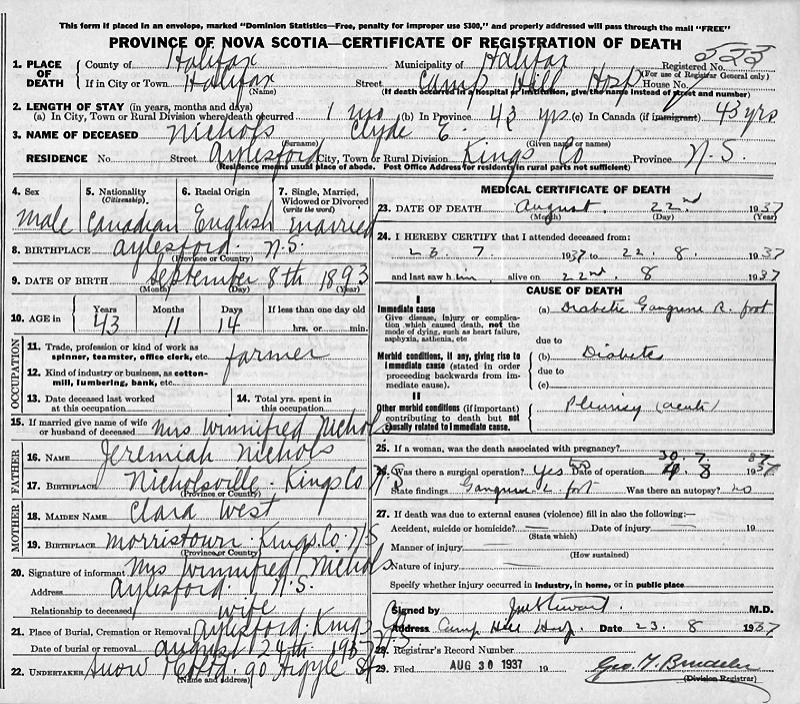 This form if placed in an envelope, marked "Dominion Statistics—Free, penalty for improper use $300," and properly addressed will pass through the mail "FREE"
PROVINCE OF NOVA SCOTIA—CERTIFICATE OF REGISTRATION OF DEATH
1. PLACE OF DEATH County of Halifax Municipality of Halifax Registered No. 533
(For use of Registrar General only)
If in City or Town Halifax Street Camp Hill Hosp House No.
(Name) (If death occurred in a hospital or institution, give the name instead of street and number)
2. LENGTH OF STAY (in years, months and days)
(a) In City, Town or Rural Division where death occurred 1 mo (b) In Province 43 yrs (c) In Canada (if immigrant) 43 yrs
3. NAME OF DECEASED Nichols Clyde E.
(Surname) (Given name or names)
RESIDENCE No. Street Aylesford City, Town or Rural Division Kings Co Province N.S.
(Residence means usual place of abode. Post Office Address for residents in rural parts not sufficient)
4. Sex 5. Nationality (Citizenship) 6. Racial Origin 7. Single, Married, Widowed or Divorced (write the word)
male Canadian English married
8. BIRTHPLACE Aylesford. N.S.
(Province or Country)
9. DATE OF BIRTH September 8th 1893
(Month) (Day) (Year)
10. AGE in Years Months Days If less than one day old
43 11 14 hrs. or min.
OCCUPATION
11. Trade, profession or kind of work as spinner, teamster, office clerk, etc. farmer
12. Kind of industry or business, as cotton-mill, lumbering, bank, etc.
13. Date deceased last worked at this occupation 14. Total yrs. spent in this occupation
15. If married give name of wife or husband of deceased Mrs Winnifred Nichols
FATHER
16. NAME Jeremiah Nichols
17. BIRTHPLACE Nicholsville. Kings Co N.S
(Province or Country)
MOTHER
18. MAIDEN NAME Clara West
19. BIRTHPLACE Morristown Kings. Co. N.S
(Province or Country)
20. Signature of informant Mrs Winnifred Nichols
Address Aylesford. N.S.
Relationship to deceased wife
21. Place of Burial, Cremation or Removal Aylesford. Kings Co. N.S.
Date of burial or removal August 24th 1937
22. UNDERTAKER Snow 90 Argyle St
(Name and address)
MEDICAL CERTIFICATE OF DEATH
23. DATE OF DEATH August 22nd 1937
(Month) (Day) (Year)
24. I HEREBY CERTIFY that I attended deceased from:
23. 7. 1937 to 22. 8. 1937
and last saw him alive on 22nd. 8 1937
CAUSE OF DEATH
I
Immediate cause (a) Diabetic Gangrene R. foot
Give disease, injury or complication which caused death, not the mode of dying, such as heart failure, asphyxia, asthenia, etc
due to
Morbid conditions, if any, giving rise to immediate cause (stated in order proceeding backwards from immediate cause). (b) Diabetes
due to
(c)
II
Other morbid conditions (if important) contributing to death but not causally related to immediate cause. Pleurisy (acute)
25. If a woman, was the death associated with pregnancy?
30. 7. 37
26. Was there a surgical operation? yes Date of operation 8 1937
State findings Gangrene foot Was there an autopsy? no
27. If death was due to external causes (violence) fill in also the following:—
Accident, suicide or homicide? Date of injury 19
(State which)
Manner of injury
(How sustained)
Nature of injury
Specify whether injury occurred in industry, in home, or in public place
Signed by Stewart. M.D.
Address Camp Hill Hosp. Date 23. 8 1937
28. Registrar's Record Number
29. Filed AUG 30 1937 19
(Division Registrar)